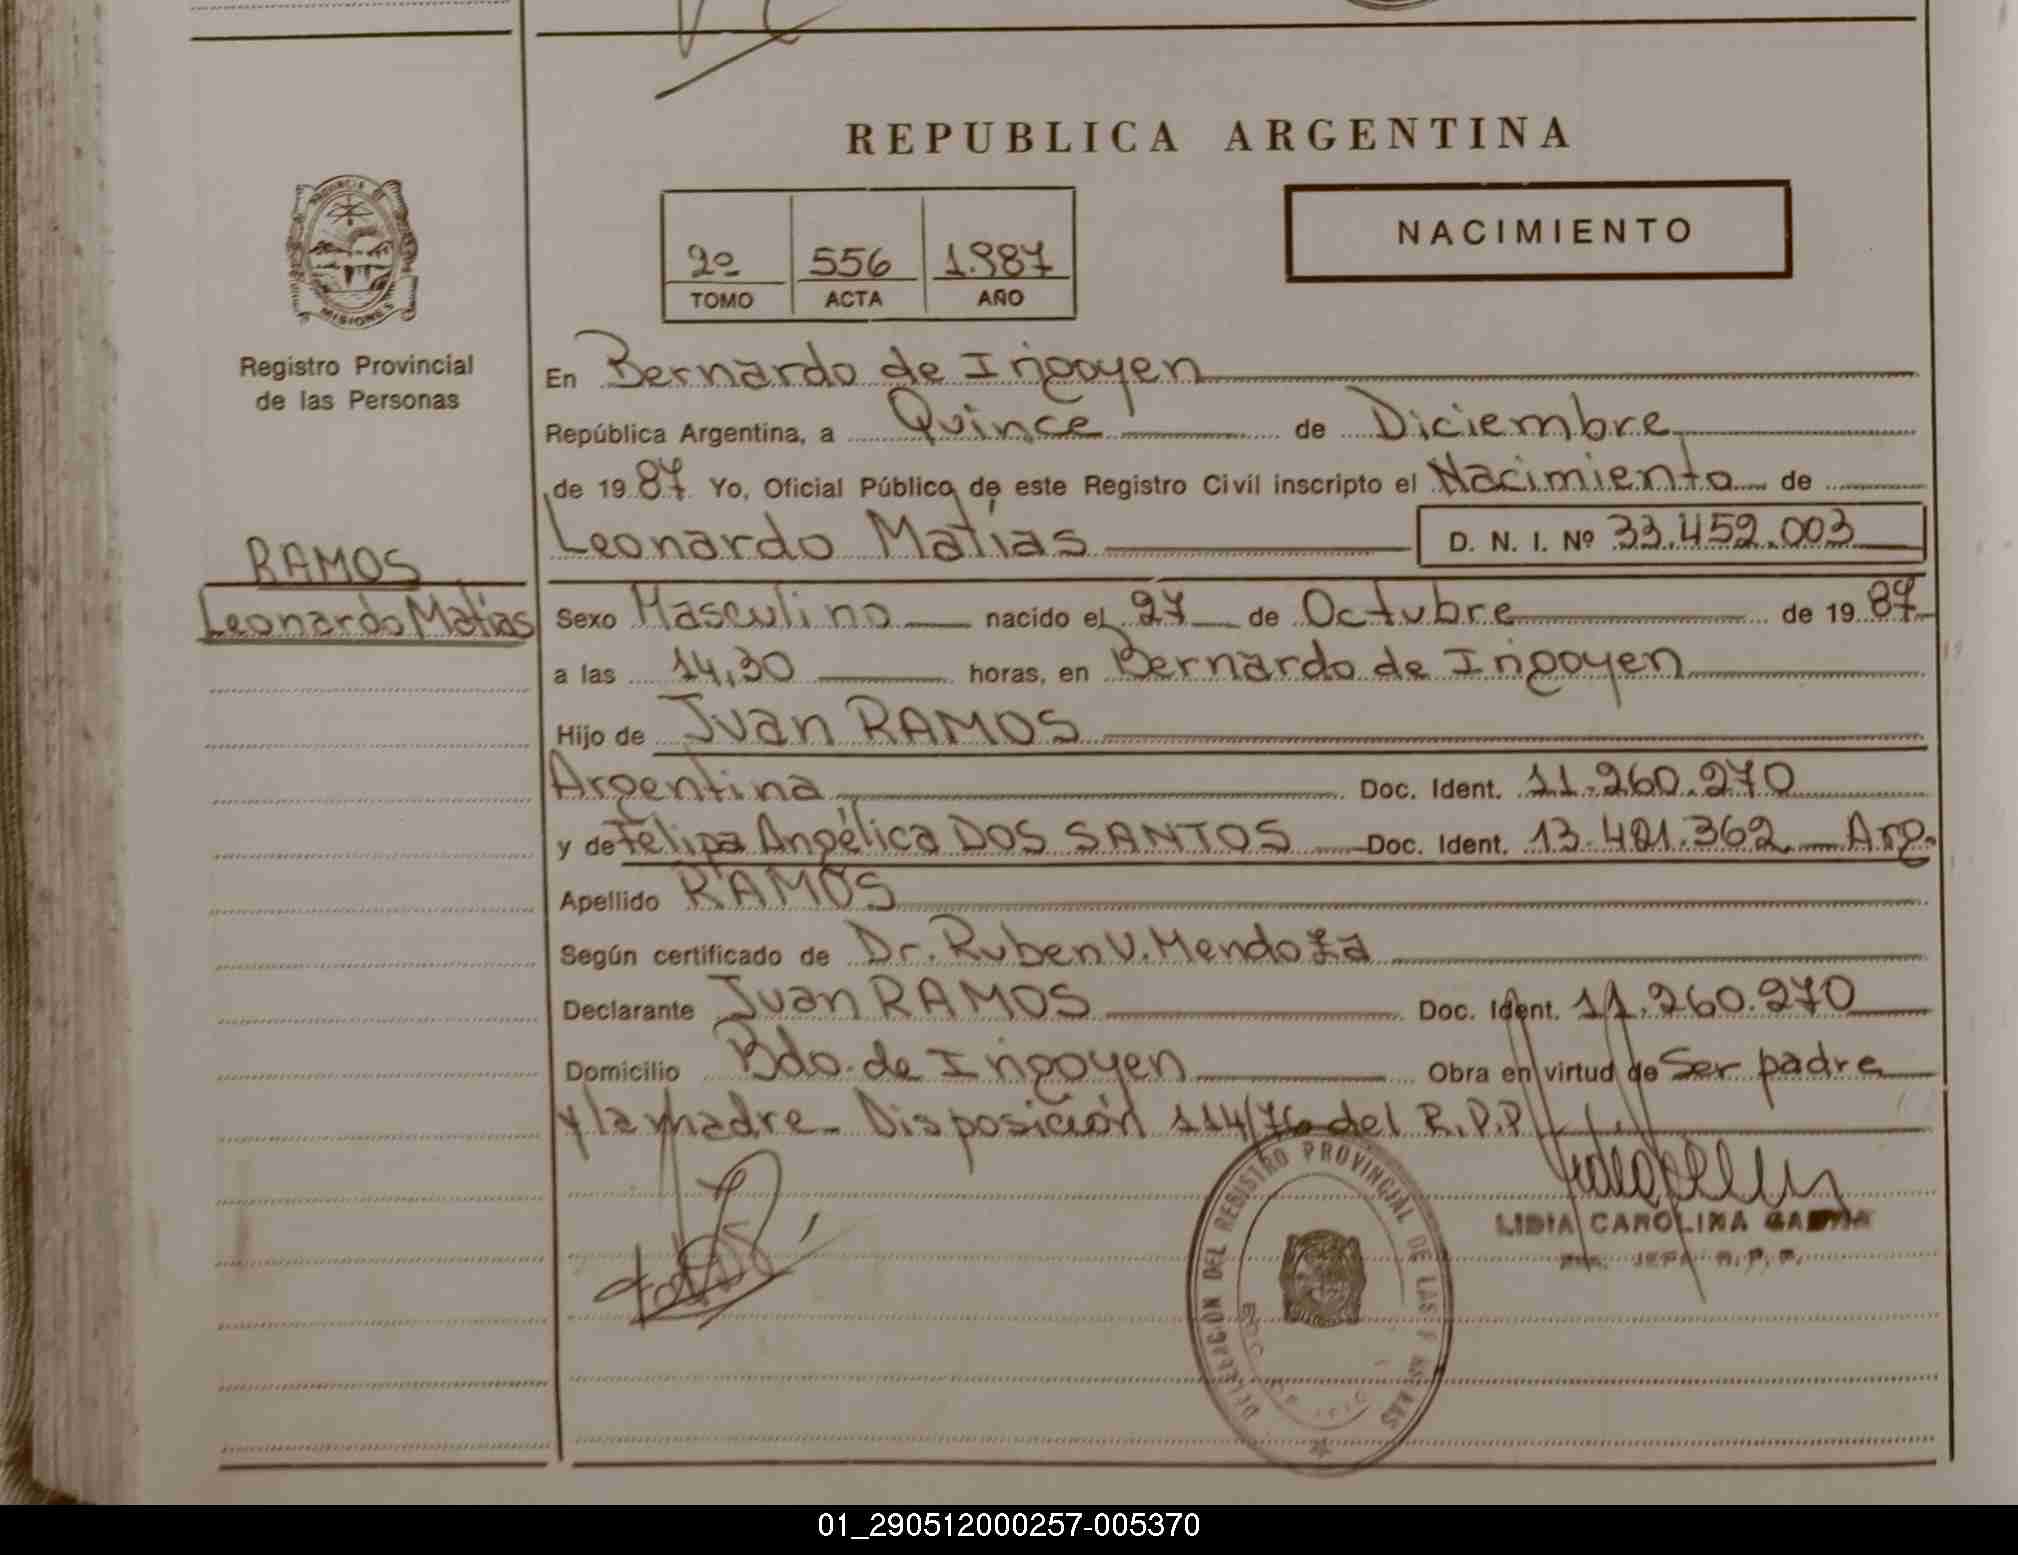 REPUBLICA ARGENTINA
NACIMIENTO
2º 556 1.987
TOMO ACTA AÑO
PROVINCIA DE
MISIONES
Registro Provincial
de las Personas
En Bernardo de Irigoyen
República Argentina, a Quince de Diciembre
de 1987 Yo, Oficial Público de este Registro Civil inscripto el Nacimiento de
Leonardo Matías D. N. I. Nº 33.459.003
RAMOS
Leonardo Matías
Sexo Masculino nacido el 27 de Octubre de 1987
a las 14,30 horas, en Bernardo de Irigoyen
Hijo de Juan RAMOS
Argentina Doc. Ident. 11.260.270
y de Felipa Angélica DOS SANTOS Doc. Ident. 13.421.362 Arg.
Apellido RAMOS
Según certificado de Dr. Ruben V. Mendoza
Declarante Juan RAMOS Doc. Ident. 11.260.270
Domicilio Bdo. de Irigoyen Obra en virtud de Ser padre
y la madre. Disposición 114/76 del R.P.P.
DELEGACION DEL REGISTRO PROVINCIAL DE LAS
LIDIA CAROLINA
JEFA R. P. P.
01_290512000257-005370